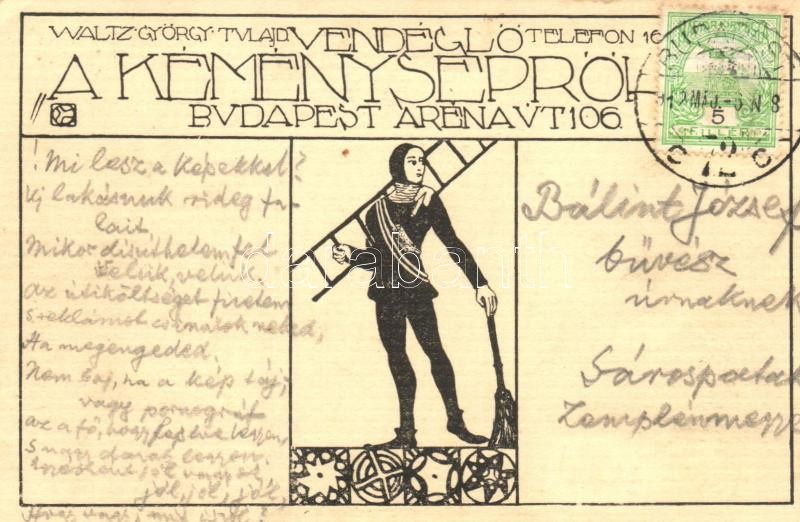 WALTZ·GYÖRGY·TULAJD. VENDÉGLŐ TELEFON 16
A KÉMÉNYSEPRŐH
BUDAPEST ARÉNAÚT 106.
5
FILLÉR
! Mi lesz a képekkel?
Új lakásnuk rideg fa-
lait
Mikor díszíthetem fel
velük, velük.
Az útiköltséget fizetem,
s reklámot csinálok neked,
Ha megengeded.
Nem baj, ha a kép táj,
vagy pornográf
az a fő, hogy festve legyen,
s nagy darab legyen.
jól, jól, jól,
Bálint József
bűvész
úrnak
Sárospatak
Zemplénmegye
darabanth.com